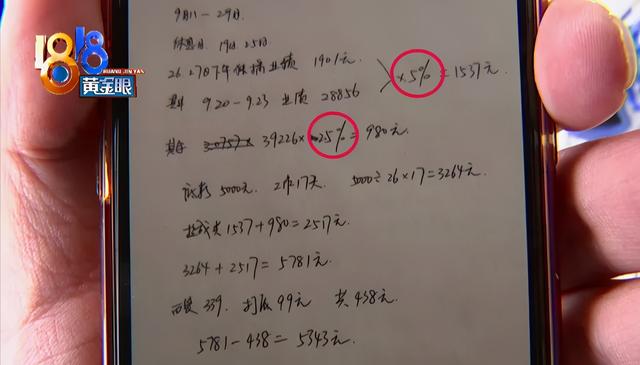 1818
HUANG JIN YAN
黄金眼
9月11-29日.
休息日. 19日 25日.
26. 27日下午保搞业绩 1901元
9.20-9.23 业绩 28856
×5% = 1537元.
30757× 39226× 2.5% = 980元.
底薪 5000元. 工作17天. 5000÷26×17=3264元.
提成共 1537+980=2517元.
3264+2517=5781元.
339. 99元 共438元.
5781-438= 5343元.